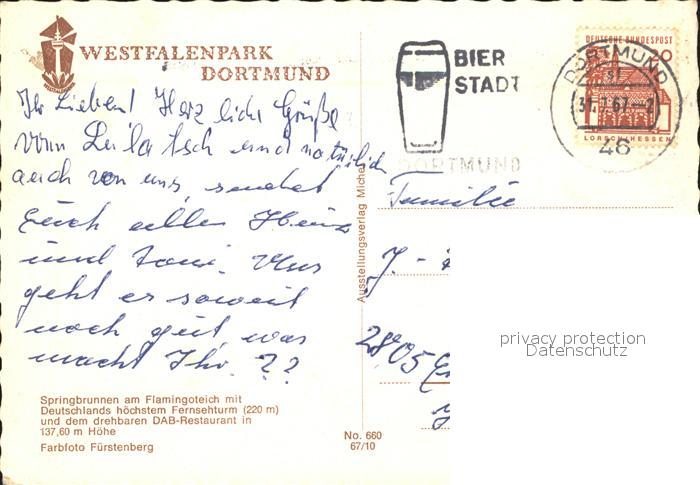 WESTFALENPARK
DORTMUND
Ihr Lieben! Herzliche Grüße
vom und natürlich
auch von uns, sendet
Euch allen Heinz
und Toni. Uns
geht es soweit
noch gut, was
macht Ihr. ??
Springbrunnen am Flamingoteich mit
Deutschlands höchstem Fernsehturm (220 m)
und dem drehbaren DAB-Restaurant in
137,60 m Höhe
Farbfoto Fürstenberg
No. 660
67/10
Ausstellungsverlag Michel
BIER
STADT
DORTMUND
DEUTSCHE BUNDESPOST
20
LORSCH/HESSEN
DORTMUND
31.7.67-2
46
Familie
J. -
2805
privacy protection
Datenschutz